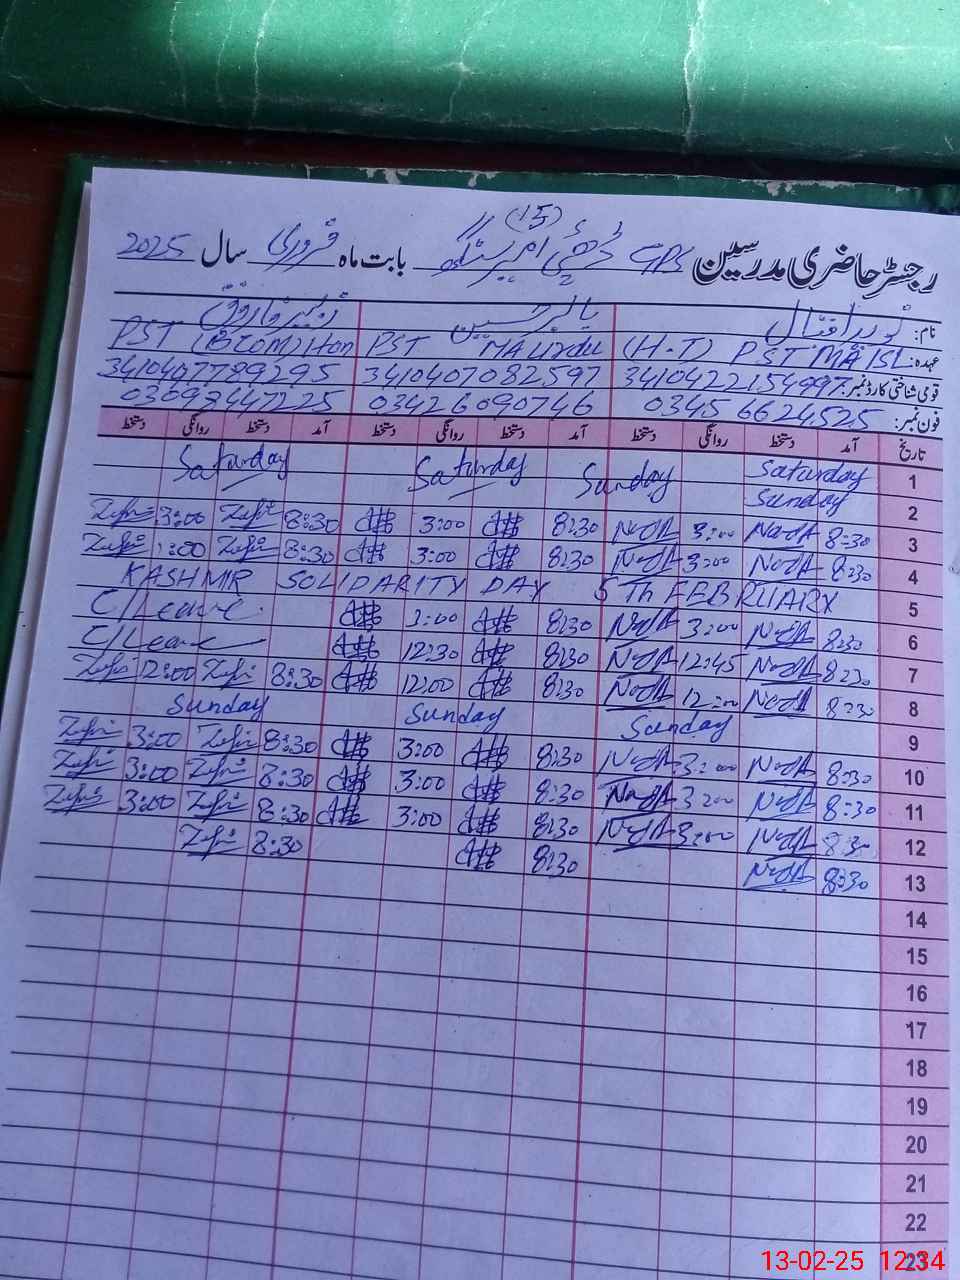 (15)
رجسٹر حاضری مدرسین GPS بابت ماہ فروری سال 2025
نام: نوید اقبال
عہدہ: (H-T) PST MA ISL PST MA Urdu PST (BCOM) Hon
قومی شناختی کارڈ نمبر: 3410422154997 3410407082597 3410407789295
فون نمبر: 0345 6624525 03426090746 03093447225
تاریخ آمد دستخط روانگی دستخط آمد دستخط روانگی دستخط آمد دستخط روانگی دستخط
1 Saturday Saturday Saturday
2 Sunday Sunday
3 8:30 3:00 8:30 3:00 8:30 3:00
4 8:30 3:00 8:30 3:00 8:30 1:00
5 KASHMIR SOLIDARITY DAY 5Th FEBRUARY
6 8:30 3:00 8:30 3:00 C/Leave
7 8:30 12:45 8:30 12:30 C/Leave
8 8:30 12:00 8:30 12:00 8:30 12:00
9 Sunday Sunday Sunday
10 8:30 3:00 8:30 3:00 8:30 3:00
11 8:30 3:00 8:30 3:00 8:30 3:00
12 8:30 3:00 8:30 3:00 8:30 3:00
13 8:30 8:30 8:30
14
15
16
17
18
19
20
21
22
23
13-02-25 12:34